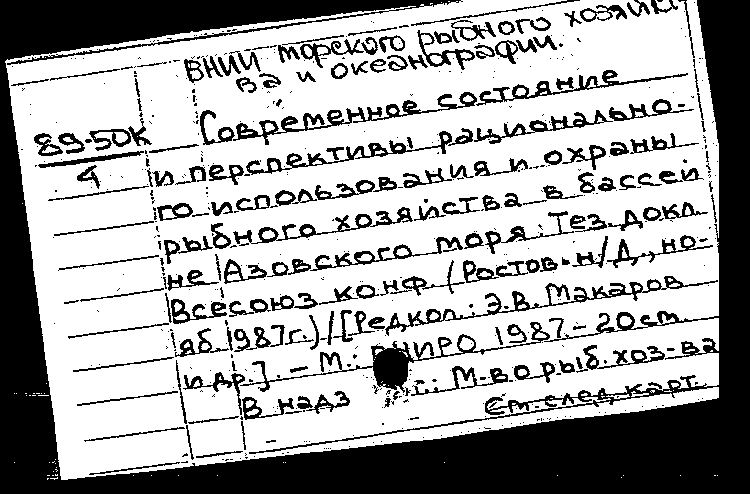 ВНИИ морского рыбного хозяйст
ва и океанографии.
89-50К
4
Современное состояние
и перспективы рационально-
го использования и охраны
рыбного хозяйства в бассей
не Азовского моря: Тез. докл.
Всесоюз конф. (Ростов-н/Д., но-
яб. 1987г.)/[Редкол.: Э.В. Макаров
и др.]. - М.: ВНИРО, 1987. - 20см.
В надз г.: М-во рыб. хоз-ва
См. след. карт.